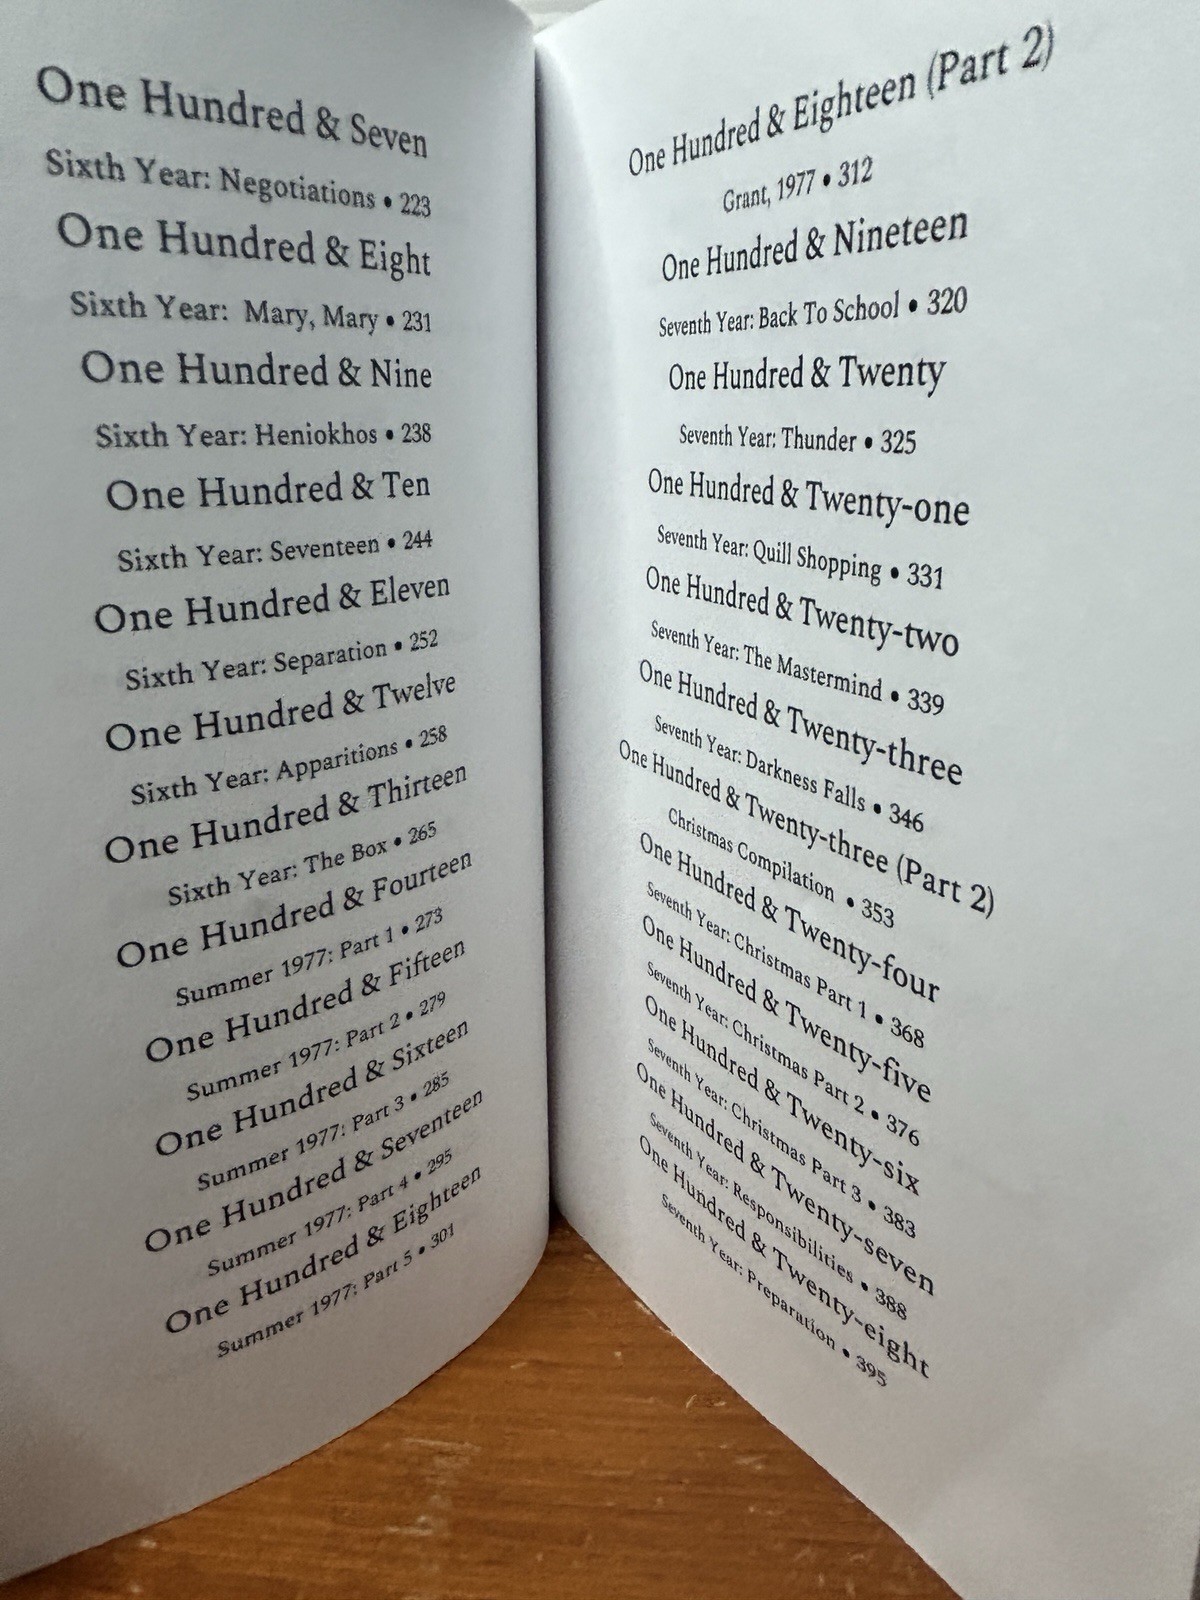 One Hundred & Seven
Sixth Year: Negotiations • 223
One Hundred & Eight
Sixth Year: Mary, Mary • 231
One Hundred & Nine
Sixth Year: Heniokhos • 238
One Hundred & Ten
Sixth Year: Seventeen • 244
One Hundred & Eleven
Sixth Year: Separation • 252
One Hundred & Twelve
Sixth Year: Apparitions • 258
One Hundred & Thirteen
Sixth Year: The Box • 265
One Hundred & Fourteen
Summer 1977: Part 1 • 273
One Hundred & Fifteen
Summer 1977: Part 2 • 279
One Hundred & Sixteen
Summer 1977: Part 3 • 285
One Hundred & Seventeen
Summer 1977: Part 4 • 295
One Hundred & Eighteen
Summer 1977: Part 5 • 301
One Hundred & Eighteen (Part 2)
Grant, 1977 • 312
One Hundred & Nineteen
Seventh Year: Back To School • 320
One Hundred & Twenty
Seventh Year: Thunder • 325
One Hundred & Twenty-one
Seventh Year: Quill Shopping • 331
One Hundred & Twenty-two
Seventh Year: The Mastermind • 339
One Hundred & Twenty-three
Seventh Year: Darkness Falls • 346
One Hundred & Twenty-three (Part 2)
Christmas Compilation • 353
One Hundred & Twenty-four
Seventh Year: Christmas Part 1 • 368
One Hundred & Twenty-five
Seventh Year: Christmas Part 2 • 376
One Hundred & Twenty-six
Seventh Year: Christmas Part 3 • 383
One Hundred & Twenty-seven
Seventh Year: Responsibilities • 388
One Hundred & Twenty-eight
Seventh Year: Preparation • 395